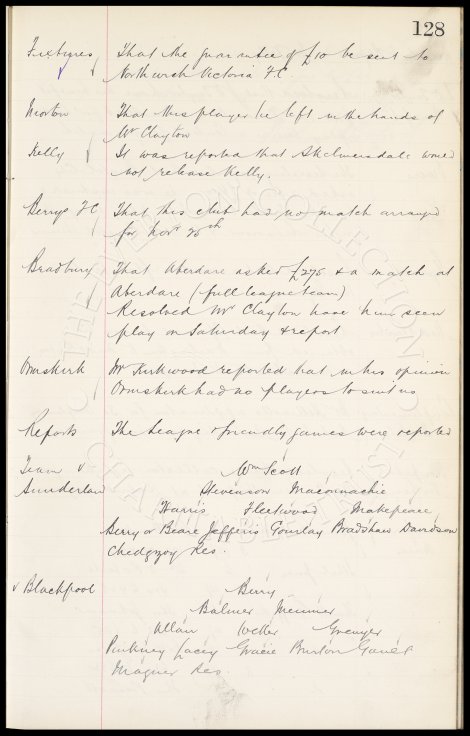 128
Fixtures That the guarantee of £10 be sent to
Northwich Victoria F.C.
Morton That this player be left in the hands of
Mr Clayton
Kelly It was reported that Skelmersdale would
not release Kelly.
Berrys FC That this club had no match arranged
for Novr 25th
Bradbury That Aberdare asked £275 & a match at
Aberdare (full league team)
Resolved Mr Clayton have him seen
play on Saturday & report
Ormskirk Mr Kirkwood reported that in his opinion
Ormskirk had no players to suit us
Reports The League & friendly games were reported
Team v Wm Scott
Sunderland Stevenson Maconnachie
Harris Fleetwood Makepeace
Berry or Beare Jefferis Gourlay Bradshaw Davidson
Chedgzoy Res.
v Blackpool Berry
Balmer Meunier
Allan Weller Grenyer
Pinkney Lacey Gracie Burton
Magner Res.
THE EVERTON COLLECTION
CHARITABLE TRUST